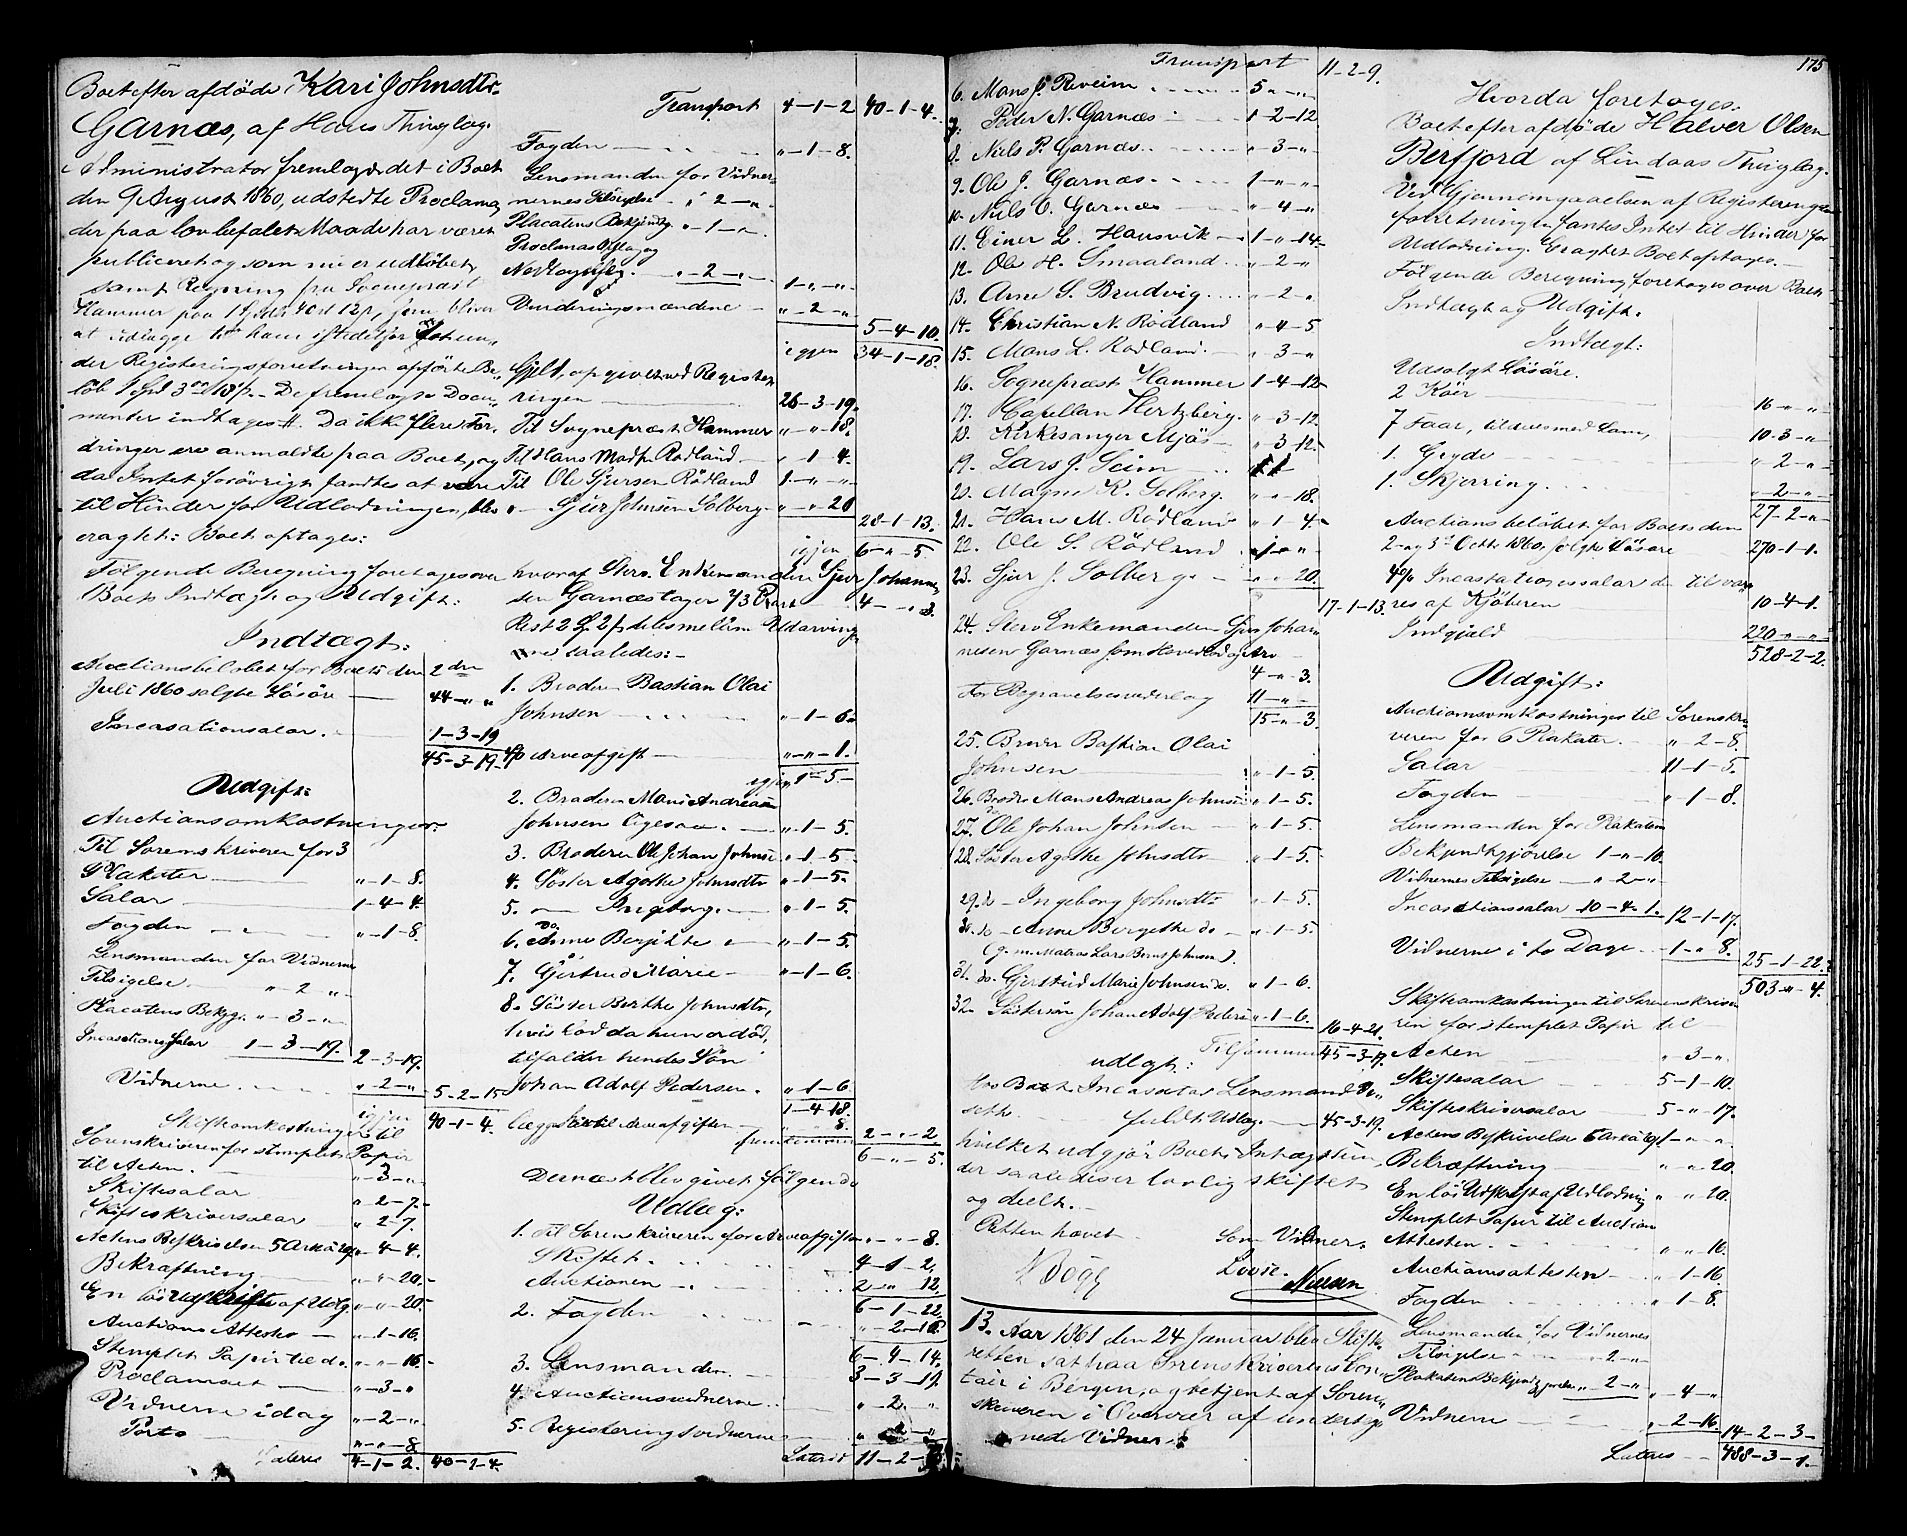 Boet efter afdøde Kari Johnsdtr
Garnæs, af Hans Thinglag.
Administrator fremlagde det i Boet
den 9 August 1860, udstedte Proclama,
der paa lovbefalet Maade har været
publiceret og som nu er udløbet,
samt Regning fra Sognepræst
Hammer paa
at udlægge
der Registeringsforretningen opførte Be-
løb De fremlagte Docu-
menter indtages #. Da ikke flere For-
dringer ere anmeldte paa Boet, og
da Intet forøvrigt fandtes at være
til Hinder for Udlodningen, blev
eragtet: Boet optages:
Følgende Beregning foretages over
Boets Indtægt og Udgift:
Indtægt:
Auctionsbeløbet for Boets den 2den
Juli 1860 solgte Løsøre 44-"-"
Incasationsalar. 1-3-19
45-3-19.
Udgift:
Auctionsomkostninger:
Til Sorenskriveren for 3
Placater "-1-8.
Salar 1-4-4
Fogden "-1-8.
Lensmanden for Vidnerne
Tilsigelse "-2-"
Placatens Bekjg. "-3-"
Incasations Salar 1-3-19. 2-3-19.
Vidnerne "-2-" 5-2-15
igjen 40-1-4.
Skifteomkostninger til
Sorenskriveren for stemplet Papir
til Acten. "-3-"
Skiftesalar "-2-7.
Skifteskriversalar "-2-7.
Actens Beskrivelse 5 Ark "-4-4.
Bekræftning "-"-20.
En løs Udskrift af Udlg. "-"-20.
Auctions Attesten "-1-16.
Stemplet Papir til do. "-"-16.
Proclamaet "-3-"
Vidnerne idag "-2-"
Porto "-"-8
Lateris 4-1-2. 40-1-4.
Transport 4-1-2 40-1-4.
Fogden "-1-8.
Lensmanden for Vidner-
nernes Tilsigelse "-2-"
Placatens Bekjendtg "-1-"
Proclamas Opslag og
Nedtagelse. "-2-" 1-"-"
Vurderingsmændene "-2-"
5-4-10.
igjen 34-1-18.
Gjeld, opgivet ved Register
ringen 26-3-19.
Til Sognepræst Hammer "-"-18.
Til Hans Mads. Rødland "-1-4.
Til Ole Sjursen Rødland 1-"-"
"- Sjur Johnsen Solberg "-"-20
28-1-13.
igjen 6-"-5.
hvoraf Sterv. Enkemanden Sjur Johanne-
sen Garnæs tager 2/3 Part 4-"-3.
Rest 2 Sp. 2 s. deles mellem Udarving
erne saaledes:-
1. Broderen Bastian Olai
Johnsen "-1-6.
4% Arveafgift "-"-1.
igjen "-1-5.
2. Broderen Mons Andreas
Johnsen "-1-5.
3. Broderen Ole Johan Johnsen "-1-5
4. Søster Agathe Johnsdtr "-1-5.
5. Do Ingeborg. "-1-5.
6. Anne Bergitte "-1-5.
7. Gjertrud Marie "-1-6.
8. Søster Berthe Johnsdtr,
hvis Lod da hun er død,
tilfalder hendes Søn
Johan Adolf Pedersen. "-1-6.
1-4-18.
lægges til Arveafgiften "-"-8.
2-"-2
fremkommer 6-"-5.
Dernæst blev givet følgende
Udlæg:
1. Til Sorenskriveren for Arveafgiften "-"-8.
Skiftet. 4-1-2.
Auctionen 2-"-12.
6-1-22
2. Fogden "-2-16.
6-4-14.
3. Lensmanden. 3-3-19.
4. Auctionsvidnerne "-2-"
5. Registeringsvidnerne "-2-"
Lateris 11-2-9.
Transport 11-2-9.
6. Mons J. Reveim 5-"-"
7. Peder N. Garnæs 1-2-12
8. Niels P. Garnæs "-3-"
9. Ole J. Garnæs 1-"-"
10. Niels O. Garnæs "-4-"
11. Einer L. Hansvik 1-"-14
12. Ole H. Smaaland "-2-"
13. Arne S. Brudvig "-2-"
14. Christian N. Rødland "-4-5
15. Mons L. Rødland "-3-"
16. Sognepræst Hammer 1-4-12
17. Capellan Hertzberg. "-3-12
18. Kirkesanger Mjøs "-3-12
19. Lars J. Seim
20. Magne K. Solberg. "-"-18.
21. Hans M. Rødland "-1-4
22. Ole S. Rødland 1-"-"
23. Sjur J. Solberg "-"-20.
17-1-13.
24. Sterv. Enkemanden Sjur Johan-
nesen Garnæs som Hovedlod og Arv
4-"-3.
For Begravelsesudlæg 11-"-"
15-"-3.
25. Broder Bastian Olai
Johnsen "-1-5.
26. Broder Mons Andreas Johnsen "-1-5.
27. Do Ole Johan Johnsen "-1-5.
28. Søster Agathe Johnsdtr "-1-5.
29. do Ingeborg Johnsdtr "-1-5.
30. do Anne Bergethe do "-1-5.
(g. m. Matros Lars Bernt Johnsen).
31. do. Gjertrud Marie Johnsen do. "-1-6.
32. Søstersøn Johan Adolf Pedersen "-1-6.
16-4-21.
Tilsammen 45-3-19.
udlgt:
Hos Boets Incasator Lensmand
fuldt Udlæg. 45-3-19.
hvilket udgjør Boets Indtægtssum,
der saaledes er lovlig skiftet
og deelt.
Retten hævet.
Som Vidner.
N Bøgg Lovie. Nielsen
13. Aar 1861 den 24 Januar blev Skifte-
retten sat paa Sorenskriverens Con-
toir i Bergen, og betjent af Soren-
skriveren i Overvær af undertg-
nede Vidner:
175
Hvorda foretoges:
Boet efter afdøde Halver Olsen
Berfjord af Lindaas Thinglag.
Ved Gjennemgaaelsen af Registerings-
forretningen fandtes Intet til Hinder for
Udlodning. Eragtet Boet optages.
Følgende Beregning foretages over Boets
Indtægt og Udgift.
Indtægt:
Udsolgt Løsøre.
2 Køer 16-"-"
7 Faar, tildeels med Lam, 10-3-"
1. Gryde "-2-"
1. Skjerring "-2-"
27-2-"
Auctionsbeløbet for Boets den
2- og 3de Octb. 1860, solgte Løsøre 270-1-1.
4% Incasationssalar der tilva-
res af Kjøberen 10-4-1.
Indgjæld 220-"-"
528-2-2.
Udgift:
Auctionsomkostninger til Sorenskri-
veren for 6 Plakater. "-2-8.
Salar 11-1-5.
Fogden "-1-8.
Lensmanden for Plakaten
Bekjendtgjørelse 1-"-16.
Vidnernes Tilsigelse "-2-"
Incasationssalar 10-4-1. 12-1-17.
Vidnerne i to Dage 1-"-8.
25-1-22.
503-"-4.
Skifteomkostninger til Sorenskrive-
ren for stemplet Papir til
Acten "-3-"
Skiftesalar 5-1-10.
Skifteskriversalar 5-"-17.
Actens Beskrivelse 6 Ark 1-"-"
Bekræftning "-"-20.
En løs Udskrift af Udlodning "-"-20.
Stemplet Papir til Auctions
Attesten. "-"-16.
Auctionsattesten "-1-16.
Fogden "-1-8.
Lensmanden for Vidnernes
Tilsigelse "-2-"
Plakatens Bekjendtgjørelse "-2-" "-4-"
Vidnerne "-2-16.
14-2-3
Lateris 488-3-1.